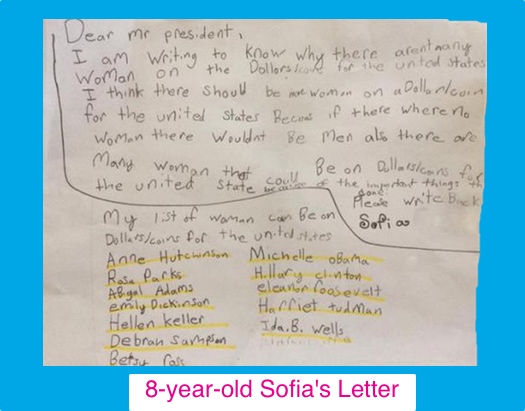 Dear mr president,
I am writing to know why there arent many
Woman on the Dollors/coins for the united states
I think there should be more women on a Dollar/coin
for the united states Becuns if there where no
woman there wouldnt Be Men also there are
Many woman that could Be on Dollars/coins for
the united state because of the important things
done. Please write Back
Sofia
My list of woman can Be on
Dollars/coins for the united states
Anne Hutchinson
Rosa Parks
Abigal Adams
emily Dickinson
Hellen keller
Debrah Sampson
Betsy Ross
Michelle obama
Hillary clinton
eleanor roosevelt
Harriet tudman
Ida.B. wells
8-year-old Sofia's Letter